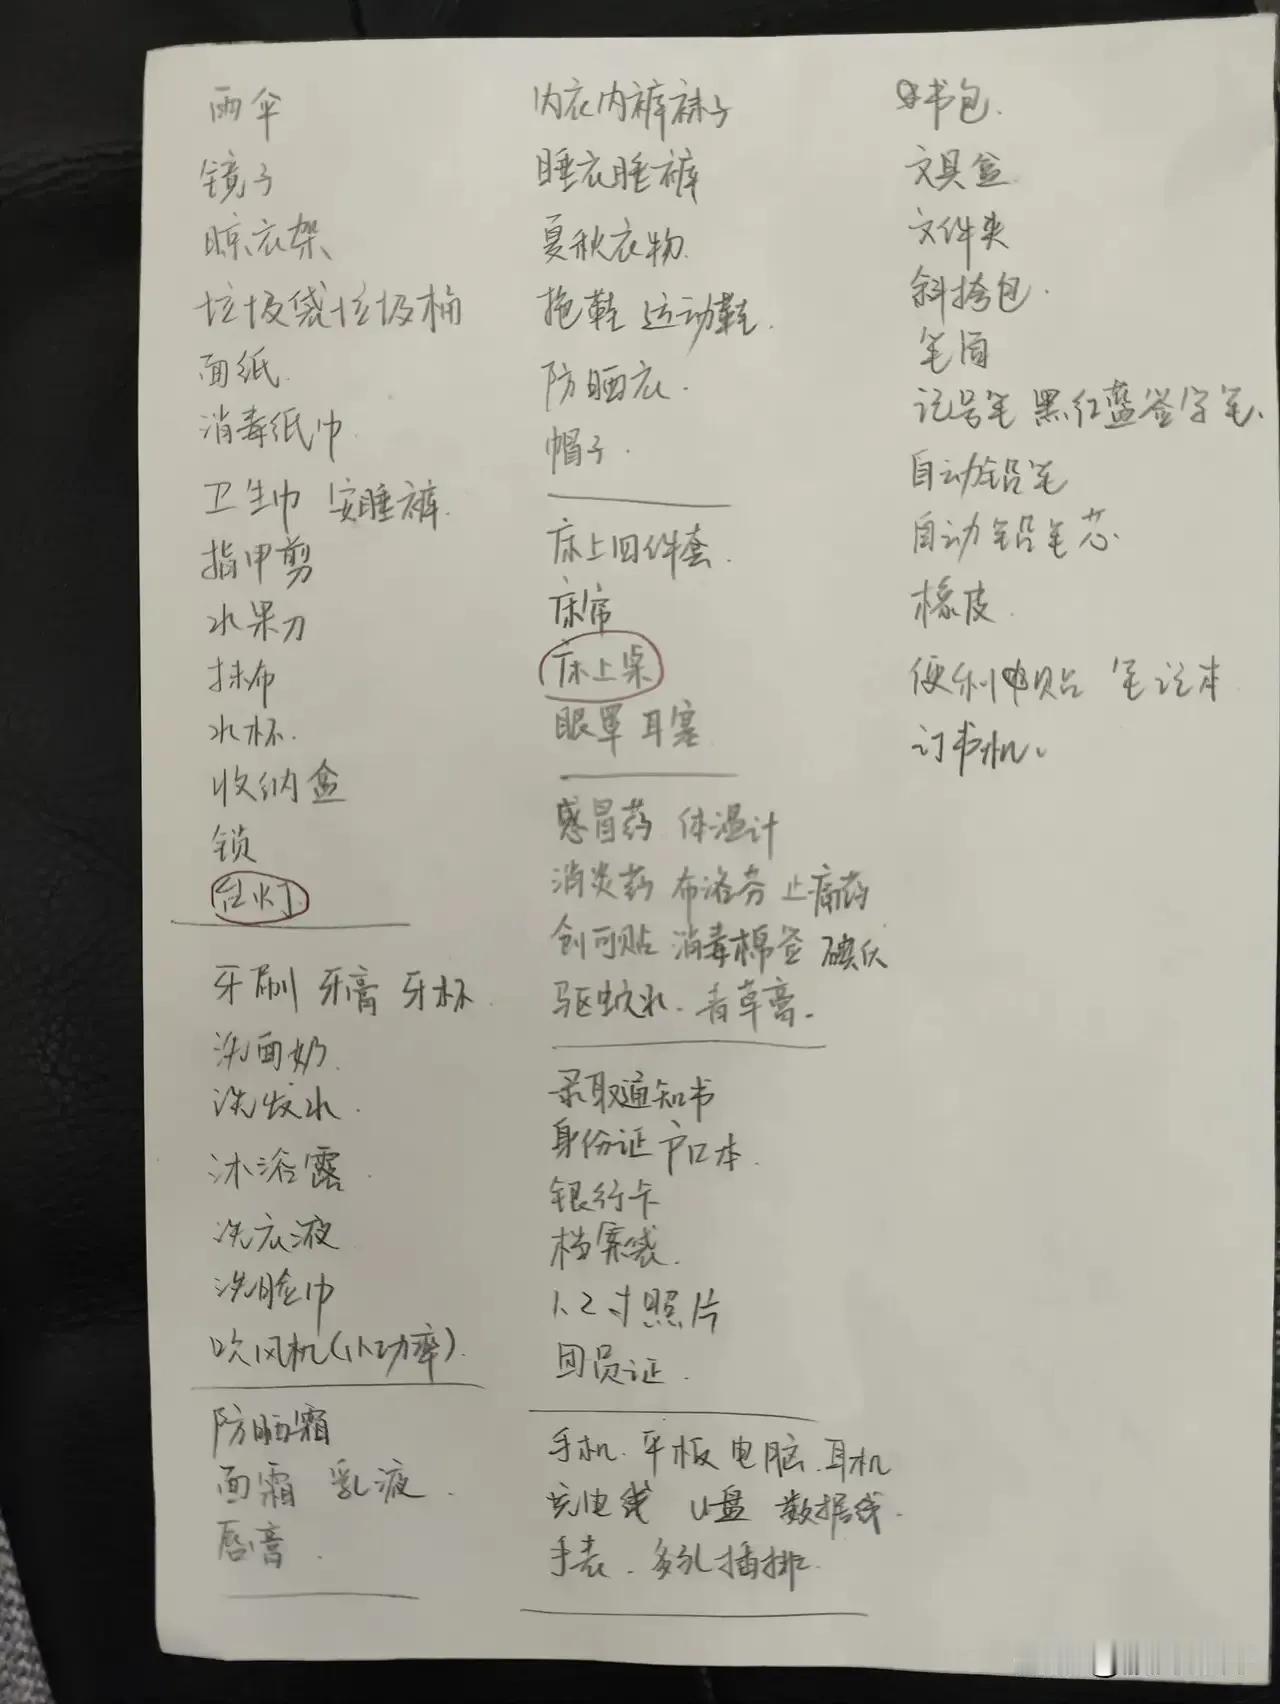 雨伞
镜子
晾衣架
垃圾袋垃圾桶
面纸
消毒纸巾
卫生巾 安睡裤
指甲剪
水果刀
抹布
水杯
收纳盒
锁
台灯
牙刷 牙膏 牙杯
洗面奶
洗发水
沐浴露
洗衣液
洗脸巾
吹风机(小功率)
防晒霜
面霜 乳液
唇膏
内衣内裤袜子
睡衣睡裤
夏秋衣物
拖鞋 运动鞋
防晒衣
帽子
床上四件套
床帘
床上桌
眼罩 耳塞
感冒药 体温计
消炎药 布洛芬 止痛药
创可贴 消毒棉签 碘伏
驱蚊水. 青草膏.
录取通知书
身份证 户口本
银行卡
档案袋
1、2寸照片
团员证
手机. 平板电脑. 耳机
充电线 U盘 数据线
手表. 多孔插排
书包.
文具盒
文件夹
斜挎包.
笔筒
记号笔 黑红蓝签字笔
自动铅笔
自动铅笔芯
橡皮
便利贴 笔记本
订书机。